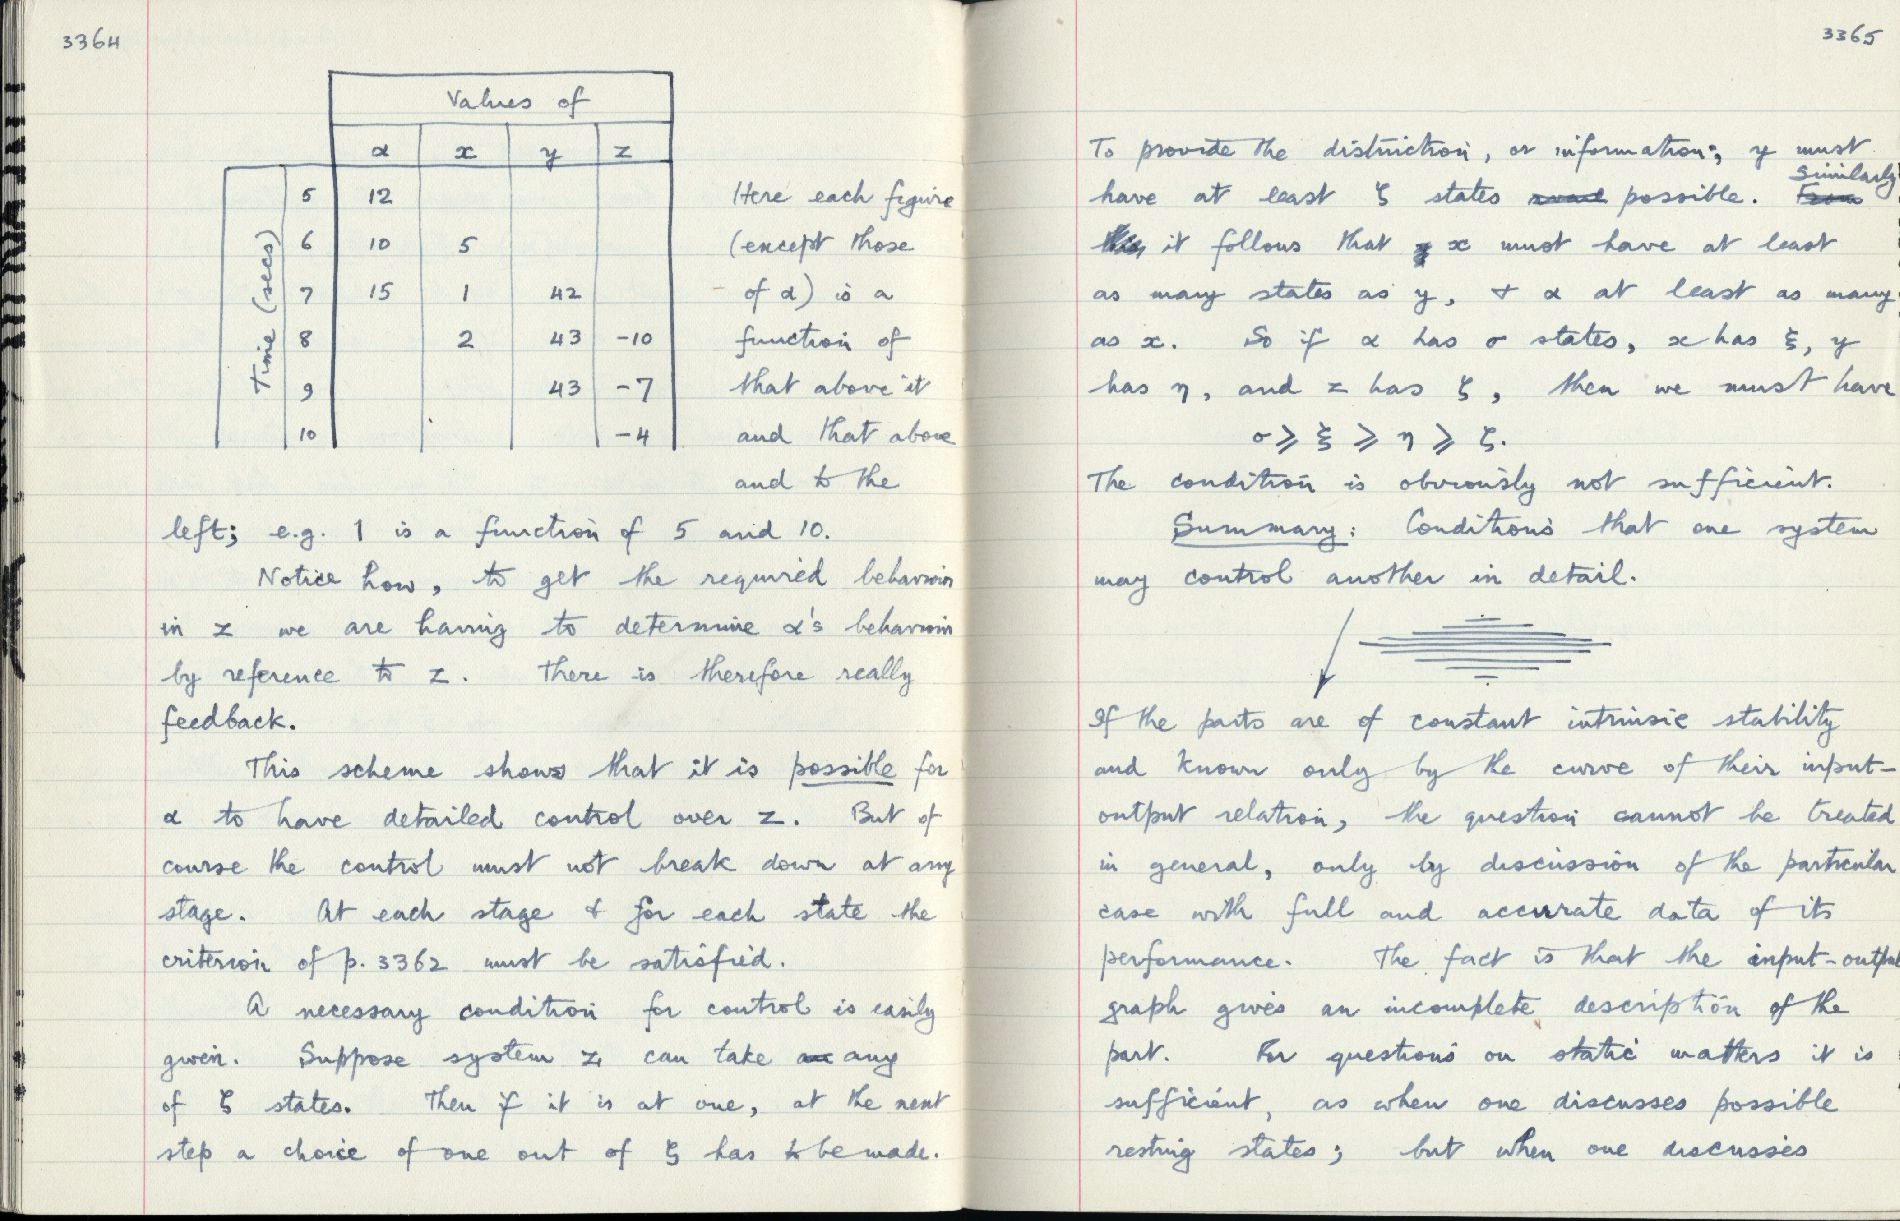 3364
Values of
α x y z
Time (secs)
5 12
6 10 5
7 15 1 42
8 2 43 -10
9 43 -7
10 -4
Here each figure
(except those
of α) is a
function of
that above it
and that above
and to the
left; e.g. 1 is a function of 5 and 10.
Notice how, to get the required behaviour
in z we are having to determine α's behaviour
by reference to z. There is therefore really
feedback.
This scheme shows that it is possible for
α to have detailed control over z. But of
course the control must not break down at any
stage. At each stage & for each state the
criterion of p. 3362 must be satisfied.
A necessary condition for control is easily
given. Suppose system z can take an any
of ζ states. Then if it is at one, at the next
step a choice of one out of ζ has to be made.
3365
To provide the distinction, or information, y must
have at least ζ states possible. From Similarly
this it follows that y x must have at least
as many states as y, & α at least as many
as x. So if α has σ states, x has ξ, y
has η, and z has ζ, then we must have
σ ⩾ ξ ⩾ η ⩾ ζ.
The condition is obviously not sufficient.
Summary: Conditions that one system
may control another in detail.
If the parts are of constant intrinsic stability
and known only by the curve of their input-
output relation, the question cannot be treated
in general, only by discussion of the particular
case with full and accurate data of its
performance. The fact is that the input-output
graph gives an incomplete description of the
part. For questions on static matters it is
sufficient, as when one discusses possible
resting states; but when one discusses